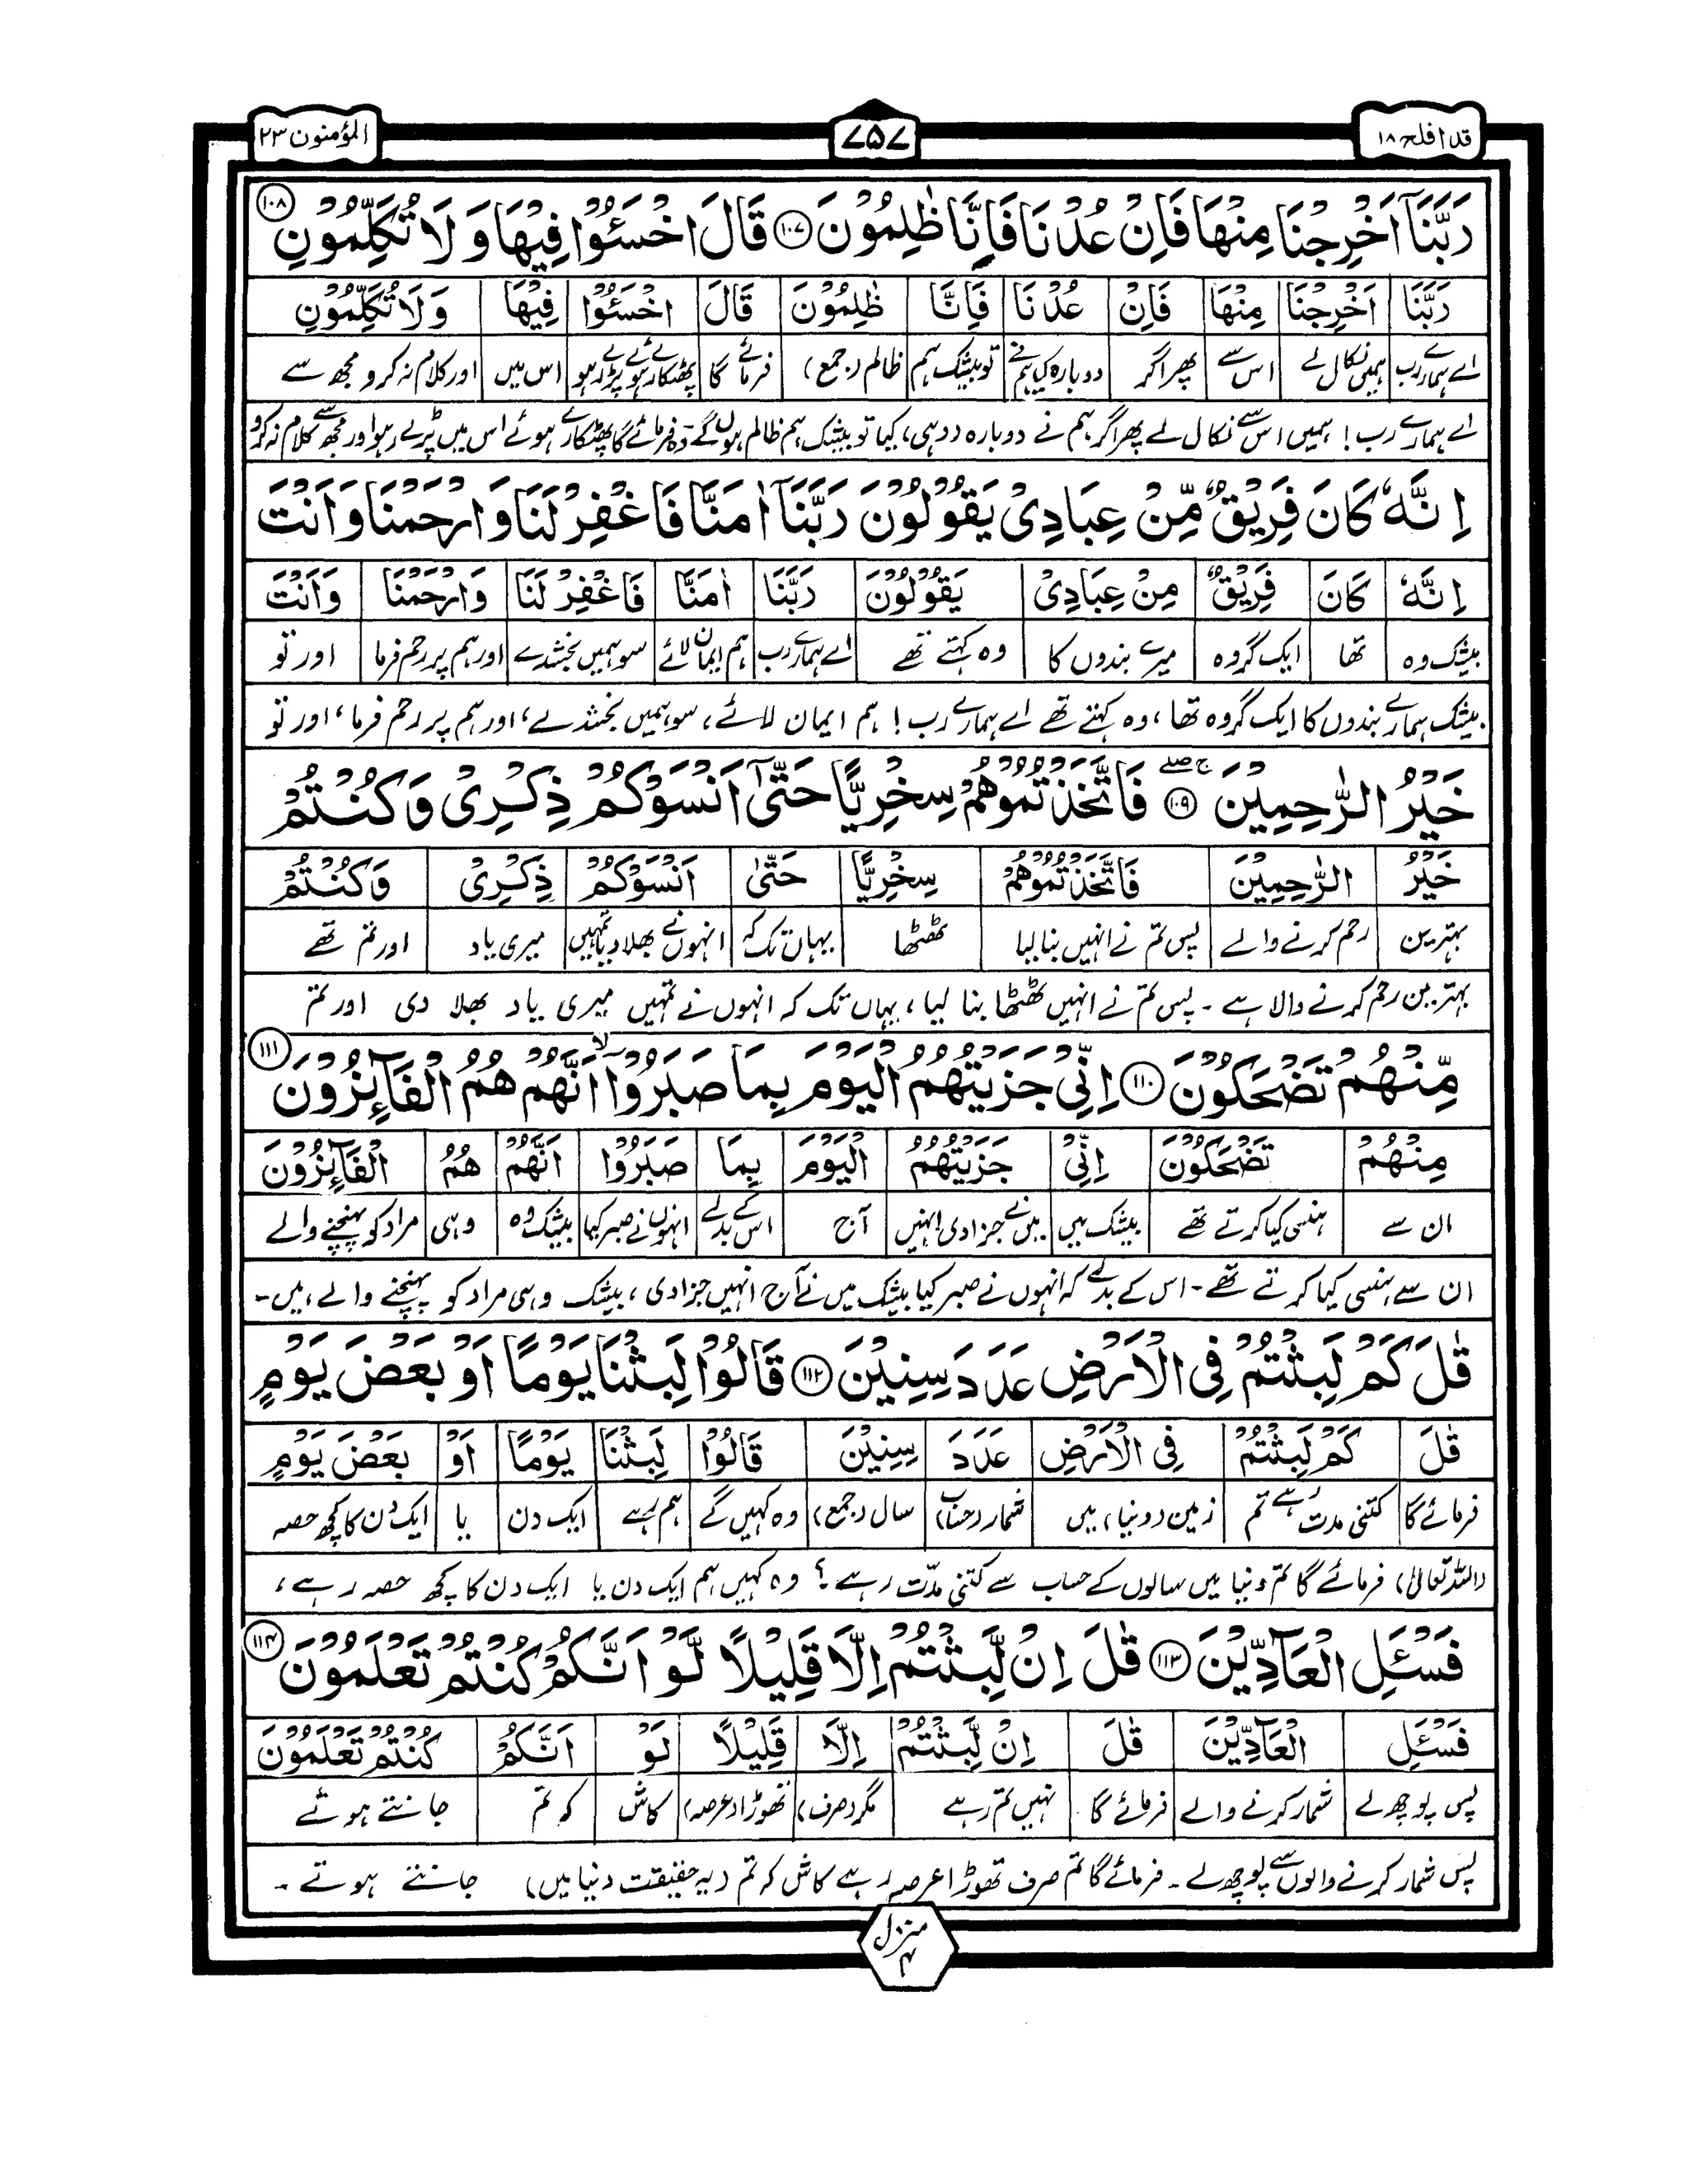 قد افلح ۱۸
۷۵۷
المؤمنون ۲۳
رَبَّنَآ اَخْرِجْنَا مِنْهَا فَاِنْ عُدْنَا فَاِنَّا ظٰلِمُوْنَ ۱۰۷ قَالَ اخْسَـُٔوْا فِيْهَا وَ لَا تُكَلِّمُوْنِ ۱۰۸
رَبَّنَا اَخْرِجْنَا مِنْهَا فَاِنْ عُدْنَا فَاِنَّا ظٰلِمُوْنَ قَالَ اخْسَـُٔوْا فِيْهَا وَلَا تُكَلِّمُوْنِ
اے ہمارے رب ہمیں نکال لے اس سے پھر اگر دوبارہ کیا ہم نے تو بیشک ہم ظالم (جمع) فرمائے گا پھٹکارے ہوئے پڑے رہو اس میں اور کلام نہ کرو مجھ سے
اے ہمارے رب! ہمیں اس سے نکال لے پھر اگر ہم نے دوبارہ (وہی) کیا تو بیشک ہم ظالم ہوں گے۔ وہ فرمائے گا پھٹکارے ہوئے اس میں پڑے رہو اور مجھ سے کلام نہ کرو
اِنَّهٗ كَانَ فَرِيْقٌ مِّنْ عِبَادِيْ يَقُوْلُوْنَ رَبَّنَآ اٰمَنَّا فَاغْفِرْ لَنَا وَارْحَمْنَا وَاَنْتَ
اِنَّهٗ كَانَ فَرِيْقٌ مِنْ عِبَادِيْ يَقُوْلُوْنَ رَبَّنَا اٰمَنَّا فَاغْفِرْ لَنَا وَارْحَمْنَا وَاَنْتَ
بیشک وہ تھا ایک گروہ میرے بندوں کا وہ کہتے تھے اے ہمارے رب ہم ایمان لائے سو ہمیں بخشدے اور ہم پر رحم فرما اور تو
بیشک ہمارے بندوں کا ایک گروہ تھا، وہ کہتے تھے اے ہمارے رب! ہم ایمان لائے، سو ہمیں بخشدے، اور ہم پر رحم فرما، اور تو
خَيْرُ الرّٰحِمِيْنَ ۱۰۹ فَاتَّخَذْتُمُوْهُمْ سِخْرِيًّا حَتّٰٓى اَنْسَوْكُمْ ذِكْرِيْ وَكُنْتُمْ
خَيْرُ الرّٰحِمِيْنَ فَاتَّخَذْتُمُوْهُمْ سِخْرِيًّا حَتّٰى اَنْسَوْكُمْ ذِكْرِيْ وَكُنْتُمْ
بہترین رحم کرنے والے پس تم نے انہیں بنا لیا ٹھٹھا یہاں تک کہ انہوں نے بھلا دیا تمہیں میری یاد اور تم تھے
بہترین رحم کرنے والا ہے۔ پس تم نے انہیں ٹھٹھا بنا لیا، یہاں تک کہ انہوں نے تمہیں میری یاد بھلا دی اور تم
مِّنْهُمْ تَضْحَكُوْنَ ۱۱۰ اِنِّيْ جَزَيْتُهُمُ الْيَوْمَ بِمَا صَبَرُوْٓا ۙ اَنَّهُمْ هُمُ الْفَآئِزُوْنَ ۱۱۱
مِنْهُمْ تَضْحَكُوْنَ اِنِّيْ جَزَيْتُهُمُ الْيَوْمَ بِمَا صَبَرُوْا اَنَّهُمْ هُمُ الْفَآئِزُوْنَ
ان سے ہنسی کیا کرتے تھے بیشک میں میں نے جزا دی انہیں آج اس کے بدلے انہوں نے صبر کیا بیشک وہ وہی مراد کو پہنچنے والے
ان سے ہنسی کیا کرتے تھے۔ اس کے بدلے کہ انہوں نے صبر کیا بیشک میں نے آج انہیں جزا دی، بیشک وہی مراد کو پہنچنے والے ہیں۔
قٰلَ كَمْ لَبِثْتُمْ فِي الْاَرْضِ عَدَدَ سِنِيْنَ ۱۱۲ قَالُوْا لَبِثْنَا يَوْمًا اَوْ بَعْضَ يَوْمٍ
قٰلَ كَمْ لَبِثْتُمْ فِي الْاَرْضِ عَدَدَ سِنِيْنَ قَالُوْا لَبِثْنَا يَوْمًا اَوْ بَعْضَ يَوْمٍ
فرمائے گا کتنی مدت رہے تم زمین (دنیا) میں شمار (حساب) سال (جمع) وہ کہیں گے ہم رہے ایک دن یا ایک دن کا کچھ حصہ
(اللہ تعالیٰ) فرمائے گا تم دنیا میں سالوں کے حساب سے کتنی مدّت رہے؟ وہ کہیں ہم ایک دن یا ایک دن کا کچھ حصہ رہے،
فَسْـَٔلِ الْعَآدِّيْنَ ۱۱۳ قٰلَ اِنْ لَّبِثْتُمْ اِلَّا قَلِيْلًا لَّوْ اَنَّكُمْ كُنْتُمْ تَعْلَمُوْنَ ۱۱۴
فَسْـَٔلِ الْعَآدِّيْنَ قٰلَ اِنْ لَّبِثْتُمْ اِلَّا قَلِيْلًا لَوْ اَنَّكُمْ كُنْتُمْ تَعْلَمُوْنَ
پس پوچھ لے شمار کرنے والے فرمائے گا نہیں تم رہے مگر (صرف) تھوڑا (عرصہ) کاش کہ تم جانتے ہوتے
پس شمار کرنے والوں سے پوچھ لے۔ فرمائے گا تم صرف تھوڑا عرصہ رہے کاش کہ تم (یہ حقیقت دنیا میں) جانتے ہوتے۔
منزل ۴